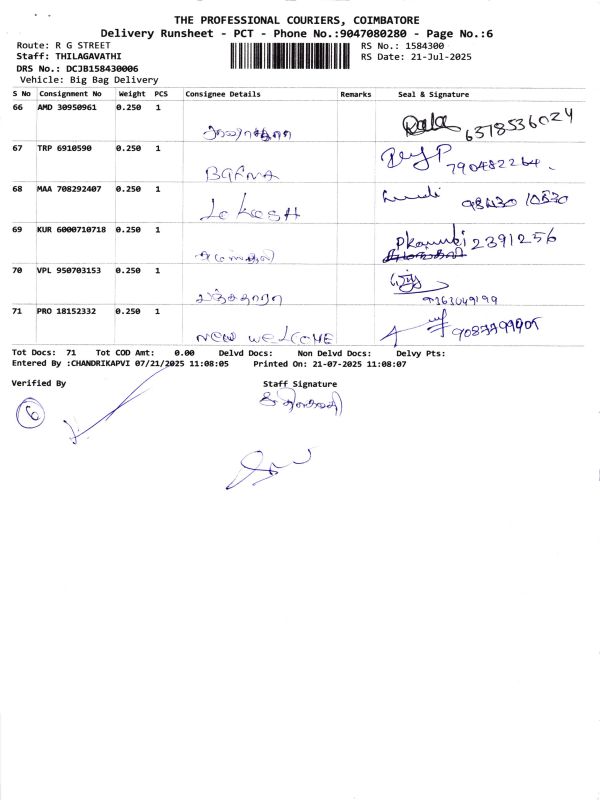 THE PROFESSIONAL COURIERS, COIMBATORE
Delivery Runsheet - PCT - Phone No.:9047080280 - Page No.:6
Route: R G STREET RS No.: 1584300
Staff: THILAGAVATHI RS Date: 21-Jul-2025
DRS No.: DCJB158430006
Vehicle: Big Bag Delivery
S No Consignment No Weight PCS Consignee Details Remarks Seal & Signature
66 AMD 30950961 0.250 1
6378536024
67 TRP 6910590 0.250 1
790482264.
BARNA
68 MAA 708292407 0.250 1
98430 10530
Lokesh
69 KUR 6000710718 0.250 1
2391256
70 VPL 950703153 0.250 1
9163049199
71 PRO 18152332 0.250 1
NEW WELCOME
Tot Docs: 71 Tot COD Amt: 0.00 Delvd Docs: Non Delvd Docs: Delvy Pts:
Entered By :CHANDRIKAPVI 07/21/2025 11:08:05 Printed On: 21-07-2025 11:08:07
Verified By Staff Signature
6